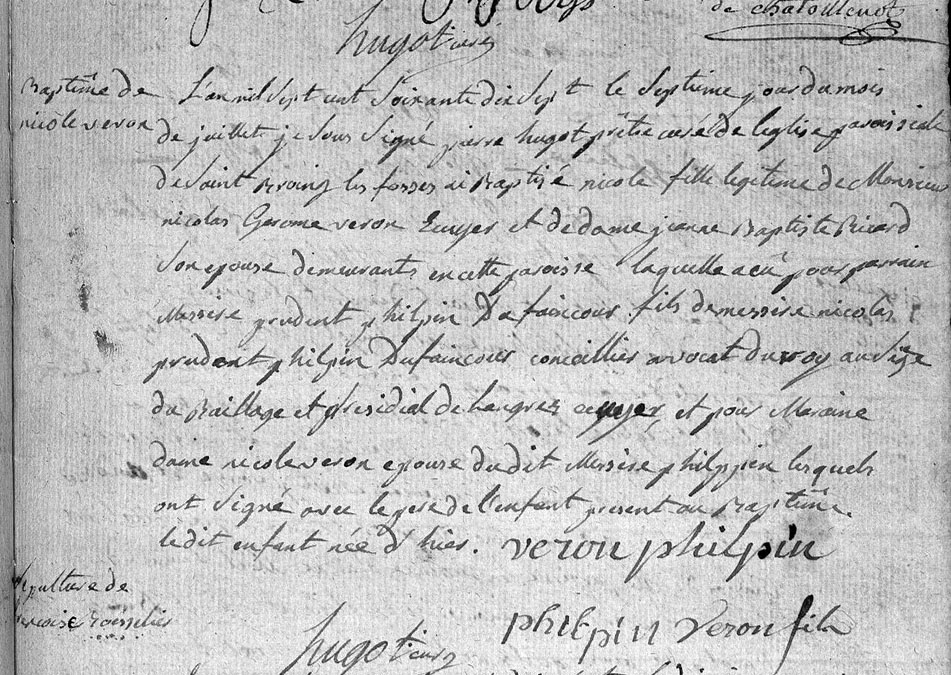 de chatoillenot
hugot curé
Baptême de
nicole veron
L'an mil sept cent soixante dix sept le septième jour du mois
de juillet je sous signé pierre hugot prêtre curé de l'eglise paroissiale
de saint Broing les fosses ai Baptisé nicole fille legitime de Monsieur
nicolas Gerome veron Ecuyer et de dame jeanne Baptiste Ricard
son epouse demeurants en cette paroisse laquelle a eû pour parrain
Messire prudent philpin Dufaincour fils de messire nicolas
prudent philpin Dufaincour conceillier avocat du roy au siège
du Baillage et presidial de Langres et pour Maraine
dame nicole veron epouse dudit Messire philppin lesquels
ont signé avec le pere de l'enfant present au Baptême.
ledit enfant née d'hier. veron philpin
sepulture de
philpin veron fils
hugot curé